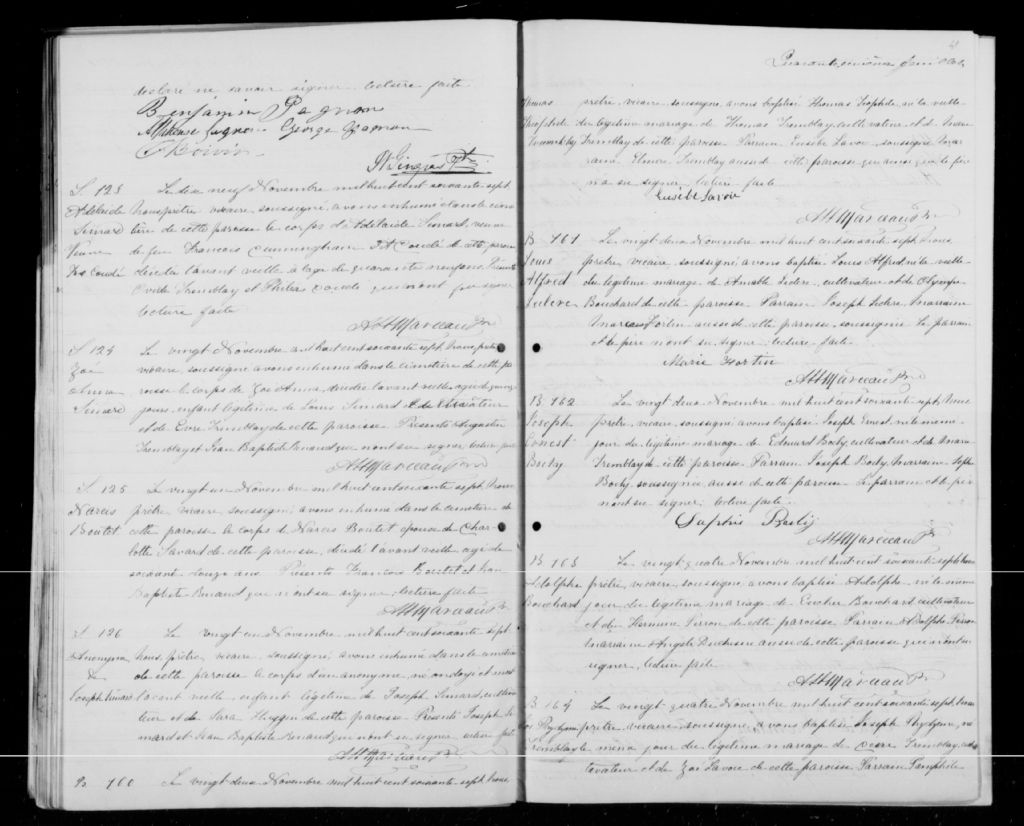 declaré ne savoir signer. lecture faite
Benjamin Gagnon
Alphonse Gagnon George Gagnon
Boivin
Ptre
S. 123 Le dix neuf Novembre mil huit cent soixante sept
Adelaide Nous prêtre vicaire, soussigné, avons inhumé dans le cime
Simard tière de cette paroisse le corps d'Adelaide Simard, veuve
Veuve de feu Francois Cunningham dit Coudé de cette parois
Dit Coudé décédée l'avant veille à l'age de quarante neuf ans. Présents
Tremblay et Coudé qui n'ont pu signer
lecture faite
A H Marceau Ptre
S. 124 Le vingt Novembre mil huit cent soixante sept, Nous prêtre
Zoé vicaire, soussigné avons inhumé dans le cimetière de cette pa
Anna roisse le corps de Zoé Anna, décédée l'avant veille, agée de quinze
Simard jours, enfant légitime de Louis Simard
et de Tremblay de cette paroisse. Présents Augustin
Tremblay et Jean Baptiste Renaud qui n'ont su signer, lecture faite
A H Marceau Ptre
S. 125 Le vingt un Novembre mil huit cent soixante sept, Nous
Narcis prêtre vicaire, soussigné, avons inhumé dans le cimetière de
Boutet cette paroisse le corps de Narcis Boutet époux de Char
lotte Savard de cette paroisse, décédé l'avant veille agé de
soixante douze ans. Présents Francois Boutet et Jean
Baptiste Renaud qui n'ont su signer, lecture faite
A H Marceau Ptre
S. 126 Le vingt un Novembre mil huit cent soixante sept
Anonyme Nous, prêtre, vicaire, soussigné, avons inhumé dans le cimetière
de cette paroisse le corps d'un anonyme, né, ondoyé et mort
Joseph Simard l'avant veille, enfant légitime de Joseph Simard, cultiva
teur et de Sara de cette paroisse. Présents Joseph Si
mard et Jean Baptiste Renaud qui n'ont su signer, lecture faite
A H Marceau Ptre
B 160 Le vingt deux Novembre mil huit cent soixante sept, Nous
4
Quarante
Thomas prêtre, vicaire, soussigné, avons baptisé Thomas Théophile né la veille
Théophile du légitime mariage de Thomas Tremblay, cultivateur et de
Tremblay Tremblay de cette paroisse. Parrain Eusèbe Lavoie, soussigné, Mar
raine Tremblay aussi de cette paroisse qui ainsi que le père
n'a su signer, lecture faite
Eusèbe Lavoie
A H Marceau Ptre
B 161 Le vingt deux Novembre mil huit cent soixante sept, Nous
Louis prêtre, vicaire, soussigné, avons baptisé Louis Alfred né la veille
Alfred du légitime mariage de Amable Leclerc, cultivateur et de Olympe
Leclerc Bouchard de cette paroisse. Parrain Joseph Leclerc, Marraine
Marie Fortin aussi de cette paroisse, soussignée. Le parrain
et le père n'ont su signer. lecture faite.
Marie Fortin
A H Marceau Ptre
B 162 Le vingt deux Novembre mil huit cent soixante sept, Nous
Joseph prêtre, vicaire, soussigné, avons baptisé Joseph Ernest né le même
Ernest jour du légitime mariage de Edouard Boily, cultivateur et de Marie
Boily Tremblay de cette paroisse. Parrain Joseph Boily, Marraine Sophie
Boily, soussignée aussi de cette paroisse. Le parrain et le père
n'ont su signer, lecture faite
Boily
A H Marceau Ptre
B 163 Le vingt quatre Novembre mil huit cent soixante sept, Nous
Adolphe prêtre, vicaire, soussigné, avons baptisé Adolphe, né le même
Bouchard jour du légitime mariage de Bouchard, cultivateur
et de Hermine Perron de cette paroisse. Parrain Adolphe Perron
Marraine Angèle Duchesne aussi de cette paroisse qui n'ont su
signer, lecture faite
A H Marceau Ptre
B 164 Le vingt quatre Novembre mil huit cent soixante sept, Nous
prêtre, vicaire soussigné, avons baptisé Joseph né
Tremblay le même jour du légitime mariage de Tremblay, cul
tivateur et de Zoé Lavoie de cette paroisse. Parrain Pamphile